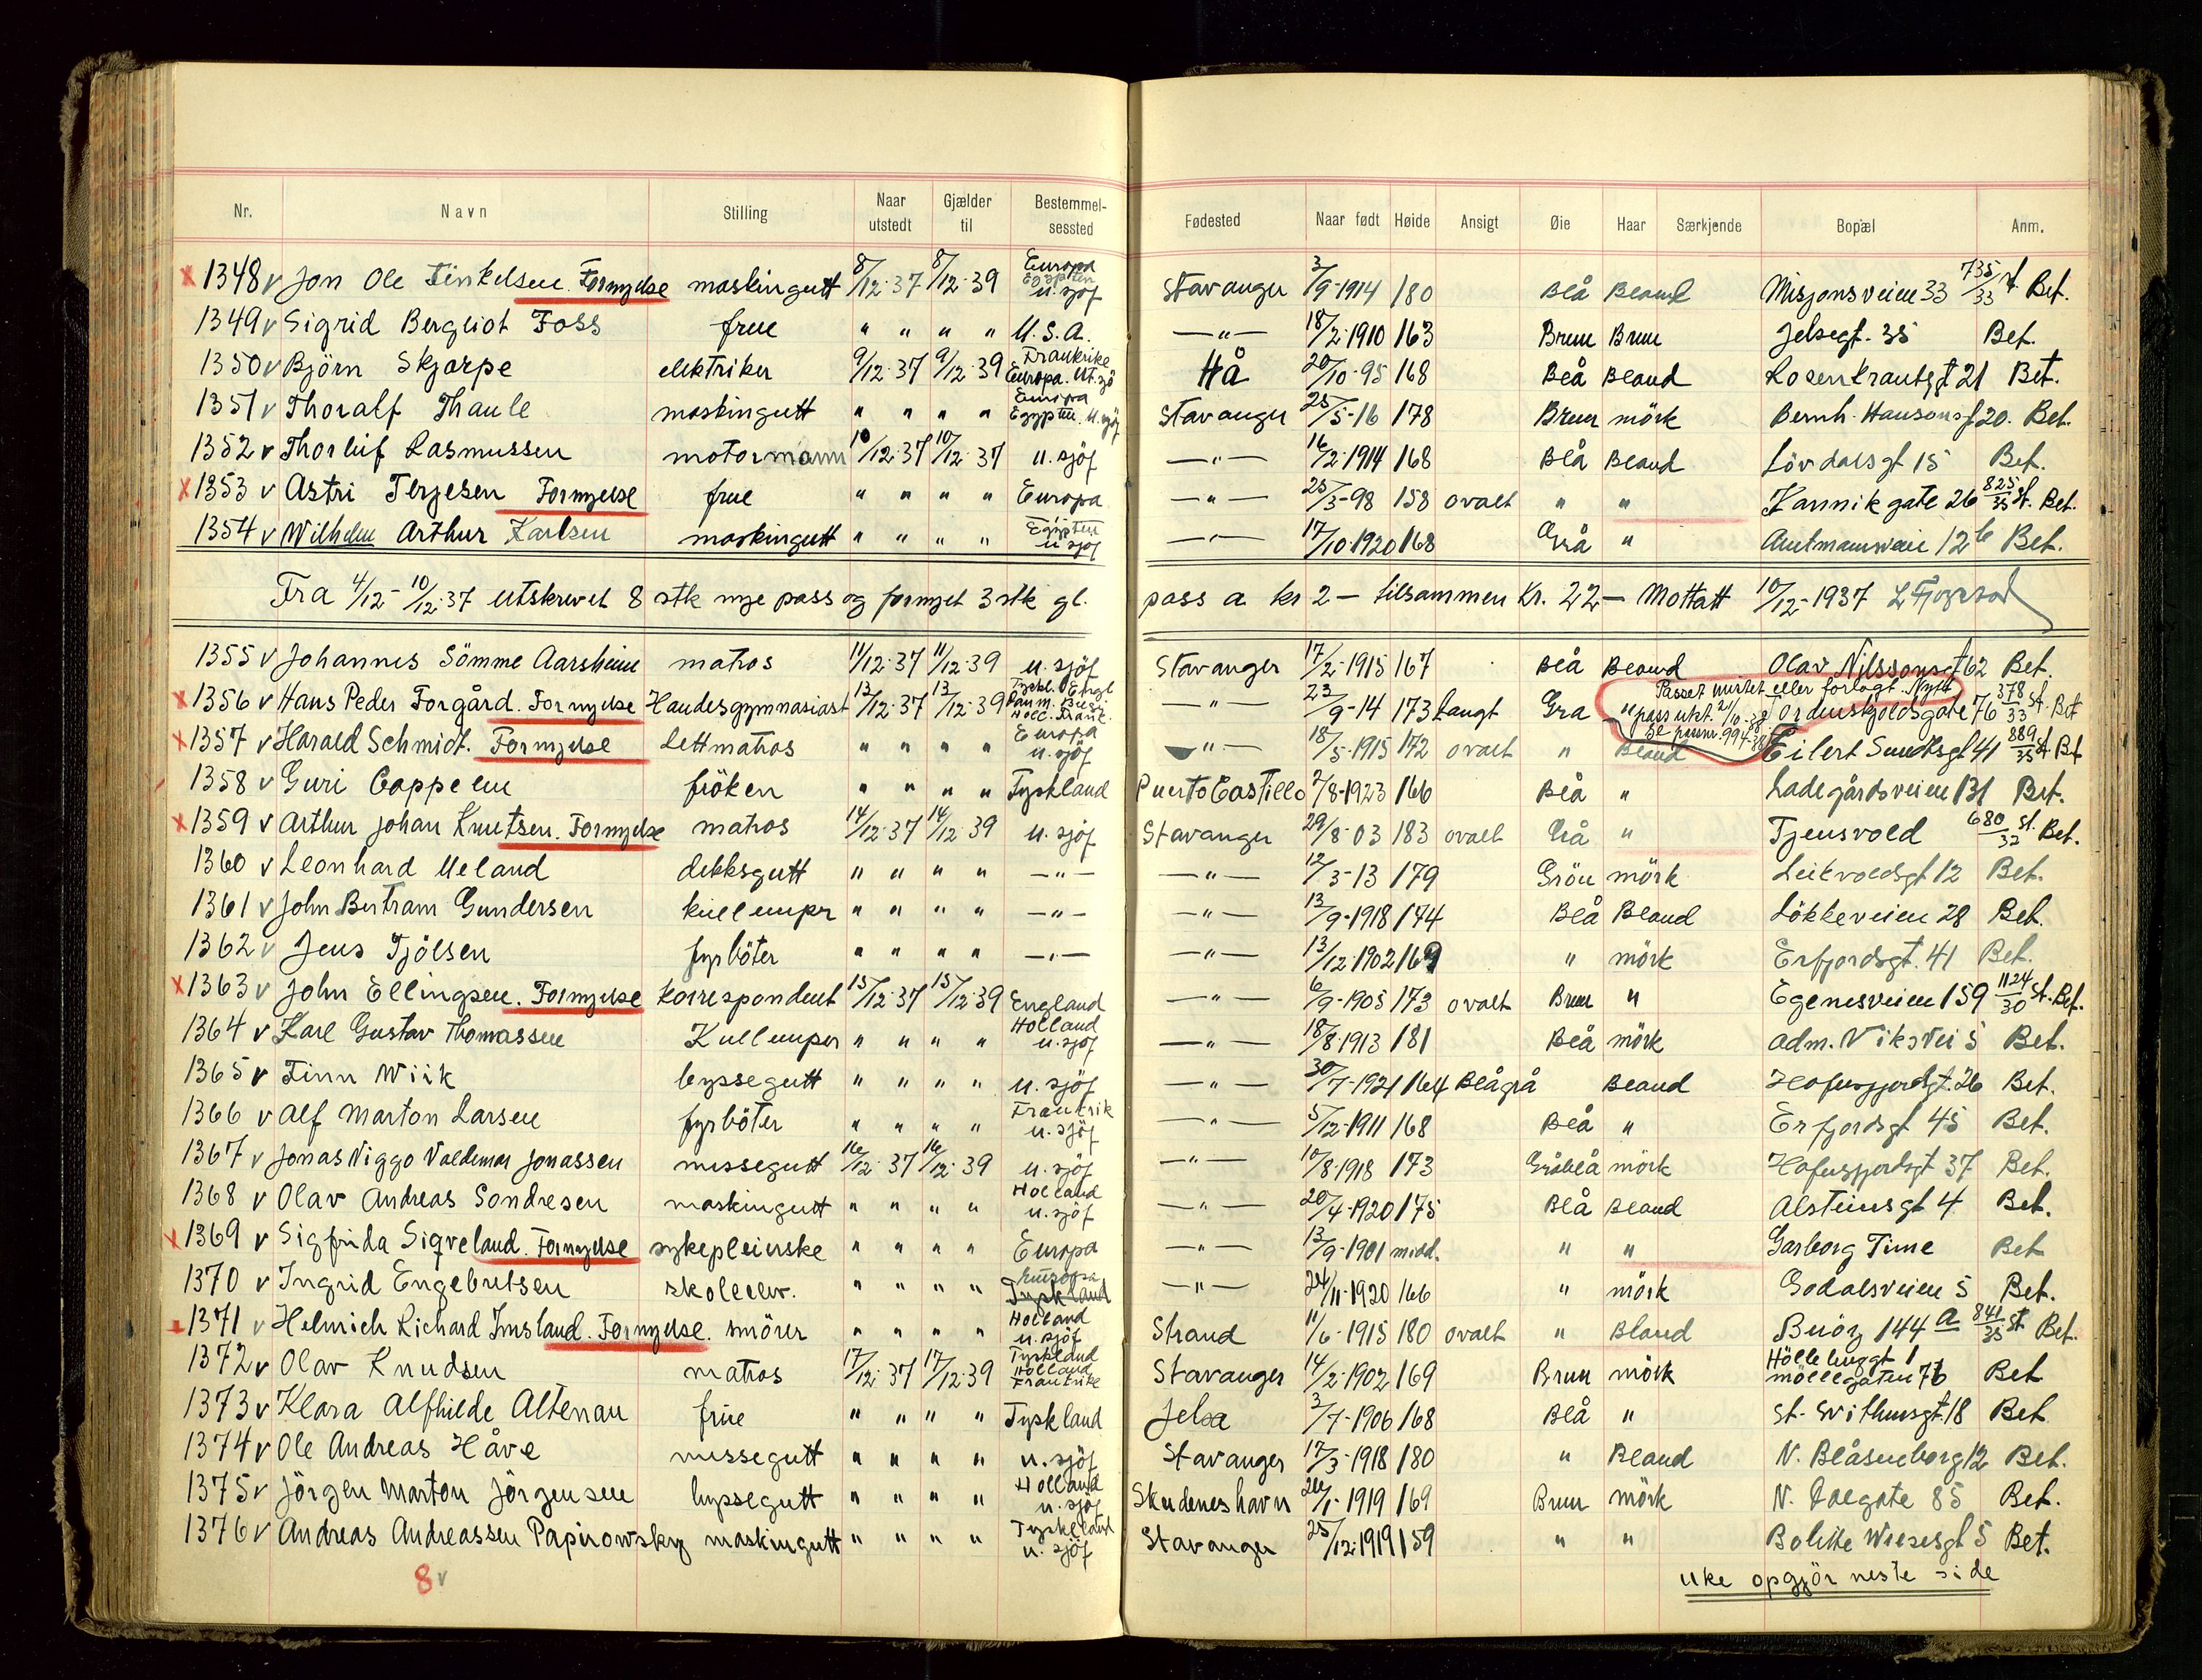 Nr. Navn Stilling Naar utstedt Gjælder til Bestemmelsessted Fødested Naar født Høide Ansigt Øie Haar Særkjende Bopæl Anm.
x 1348 v Jon Ole Finkelsen. Fornyelse maskingutt 8/12-37 8/12-39 Europa Egypten u. sjöf Stavanger 3/9-1914 180 Blå Blond Misjonsveien 33 735/33 st. Bet.
1349 v Sigrid Bergliot Foss frue " " " " U.S.A. —"— 18/2-1910 163 Brun Brun Jelsegt. 35 Bet.
1350 v Björn Skjorpe elektriker 9/12-37 9/12-39 Frankrike Europa. Ut. sjö Hå 20/10-95 168 Blå Blond Rosenkrantzgt 21 Bet.
1351 v Thoralf Thaule maskingutt " " " " Europa Egypten u. sjöf Stavanger 25/5-16 178 Brun mörk Bernh. Hansonsg 20. Bet.
1352 v Thorleif Rasmussen motormann 10/12-37 10/12-37 u. sjöf —"— 16/2-1914 168 Blå Blond Lövdalsgt 15 Bet.
x 1353 v Astri Terjesen Fornyelse frue " " " " Europa —"— 25/3-98 158 ovalt " " Kannikgate 26 825/35 st. Bet.
1354 v Wilhelm Arthur Karlsen maskingutt " " " " Egypten u sjöf —"— 17/10-1920 168 Grå " Amtmannsveien 12 b Bet.
Fra 4/12 - 10/12-37 utskrevet 8 stk nye pass og fornyet 3 stk gl. pass a kr 2 — tilsammen Kr. 22 — Mottatt 10/12-1937
1355 v Johannes Sömme Aarsheim matros 11/12-37 11/12-39 u. sjöf Stavanger 17/2-1915 167 Blå Blond Olav Nilssonsgt 62 Bet.
x 1356 v Hans Peder Forgård. Fornyelse Handelsgymnasiast 13/12-37 13/12-39 Tyskl. Engl Danm. Belg. Holl. Frank. —"— 23/9-14 173 Langt Gra " Ordenskjoldsgate 76 378/33 st. Bet
Passet mistet eller forlagt. Nytt pass utst. 21/10-38 Se passnr. 994-38
x 1357 v Harald Schmidt. Fornyelse Lettmatros " " " " Europa u. sjöf —"— 18/5-1915 172 ovalt " Blond Eilert Sundtsgt 41 889/35 st Bet
1358 v Guri Cappelen fröken " " " " Tyskland Puerto Castillo 7/8-1923 166 Blå " Ladegårdsveien 131 Bet.
x 1359 v Arthur Johan Knutsen. Fornyelse matros 14/12-37 14/12-39 u. sjöf Stavanger 29/8-03 183 ovalt Grå " Tjensvold 680/32 st. Bet.
1360 v Leonhard Meland dekksgutt " " " " —"— —"— 12/3-13 179 Grön mörk Leikvoldsgt 12 Bet.
1361 v John Bertram Gundersen kullemper " " " " —"— —"— 13/9-1918 174 Blå Blond Lökkeveien 28 Bet.
1362 v Jens Tjölsen fyrböter " " " " —"— —"— 13/12-1902 169 " mörk Erfjordsgt. 41 Bet.
x 1363 v John Ellingsen. Fornyelse korrespondent 15/12-37 15/12-39 England —"— 6/9-1905 173 ovalt Brun " Egenesveien 159 1124/30 st. Bet.
1364 v Karl Gustav Thomassen Kullemper " " " " Holland u. sjöf —"— 18/8-1913 181 Blå mörk adm. Viks vei 5 Bet.
1365 v Finn Wiik byssegutt " " " " u. sjöf —"— 30/7-1921 164 Blågrå Blond Hafrsfjordgt. 26 Bet.
1366 v Alf Marton Larsen fyrböter " " " " Frankrik u. sjöf —"— 5/12-1911 168 Blå " Erfjordsgt 45 Bet.
1367 v Jonas Viggo Valdemar Jonassen messegutt 16/12-37 16/12-39 u. sjöf —"— 10/8-1918 173 Gråblå mörk Hafrsfjordsgt 37 Bet.
1368 v Olav Andreas Sondresen maskingutt " " " " Holland u. sjöf —"— 20/4-1920 175 Blå Blond Alsteinsgt 4 Bet.
x 1369 v Sigfrida Sigveland. Fornyelse sykepleierske " " " " Europa —"— 13/9-1901 midd. " " Garborg Time Bet
1370 v Ingrid Engebretsen skoleelev. " " " " Europa Tyskland —"— 24/11-1920 166 " mörk Godalsveien 5 Bet.
x 1371 v Helmich Richard Imsland. Fornyelse. smörer " " " " Holland u. sjöf Strand 11/6-1915 180 ovalt " Blond Buöy 144 a 841/35 st. Bet.
1372 v Olav Knudsen matros 17/12-37 17/12-39 Tyskland Holland Frankrike Stavanger 14/2-1902 169 Brun mörk möllegaten 76 Bet
1373 v Klara Alfhilde Altenau frue " " " " Tyskland Jelsa 3/7-1906 168 Blå " St. Svithunsgt. 18 Bet
1374 v Ole Andreas Håve messegutt " " " " u. sjöf Stavanger 17/3-1918 180 " Blond N. Blåsenborg 12 Bet.
1375 v Jörgen Marton Jörgensen byssegutt " " " " Holland u. sjöf Skudeneshavn 26/1-1919 169 Brun mörk N. Dalgate 85 Bet.
1376 v Andreas Andreassen Papirowsky maskingutt " " " " Tyskland u. sjöf Stavanger 25/12-1919 159 " " Bolette Wiesesgt 5 Bet.
8 v
uke opgjör neste side